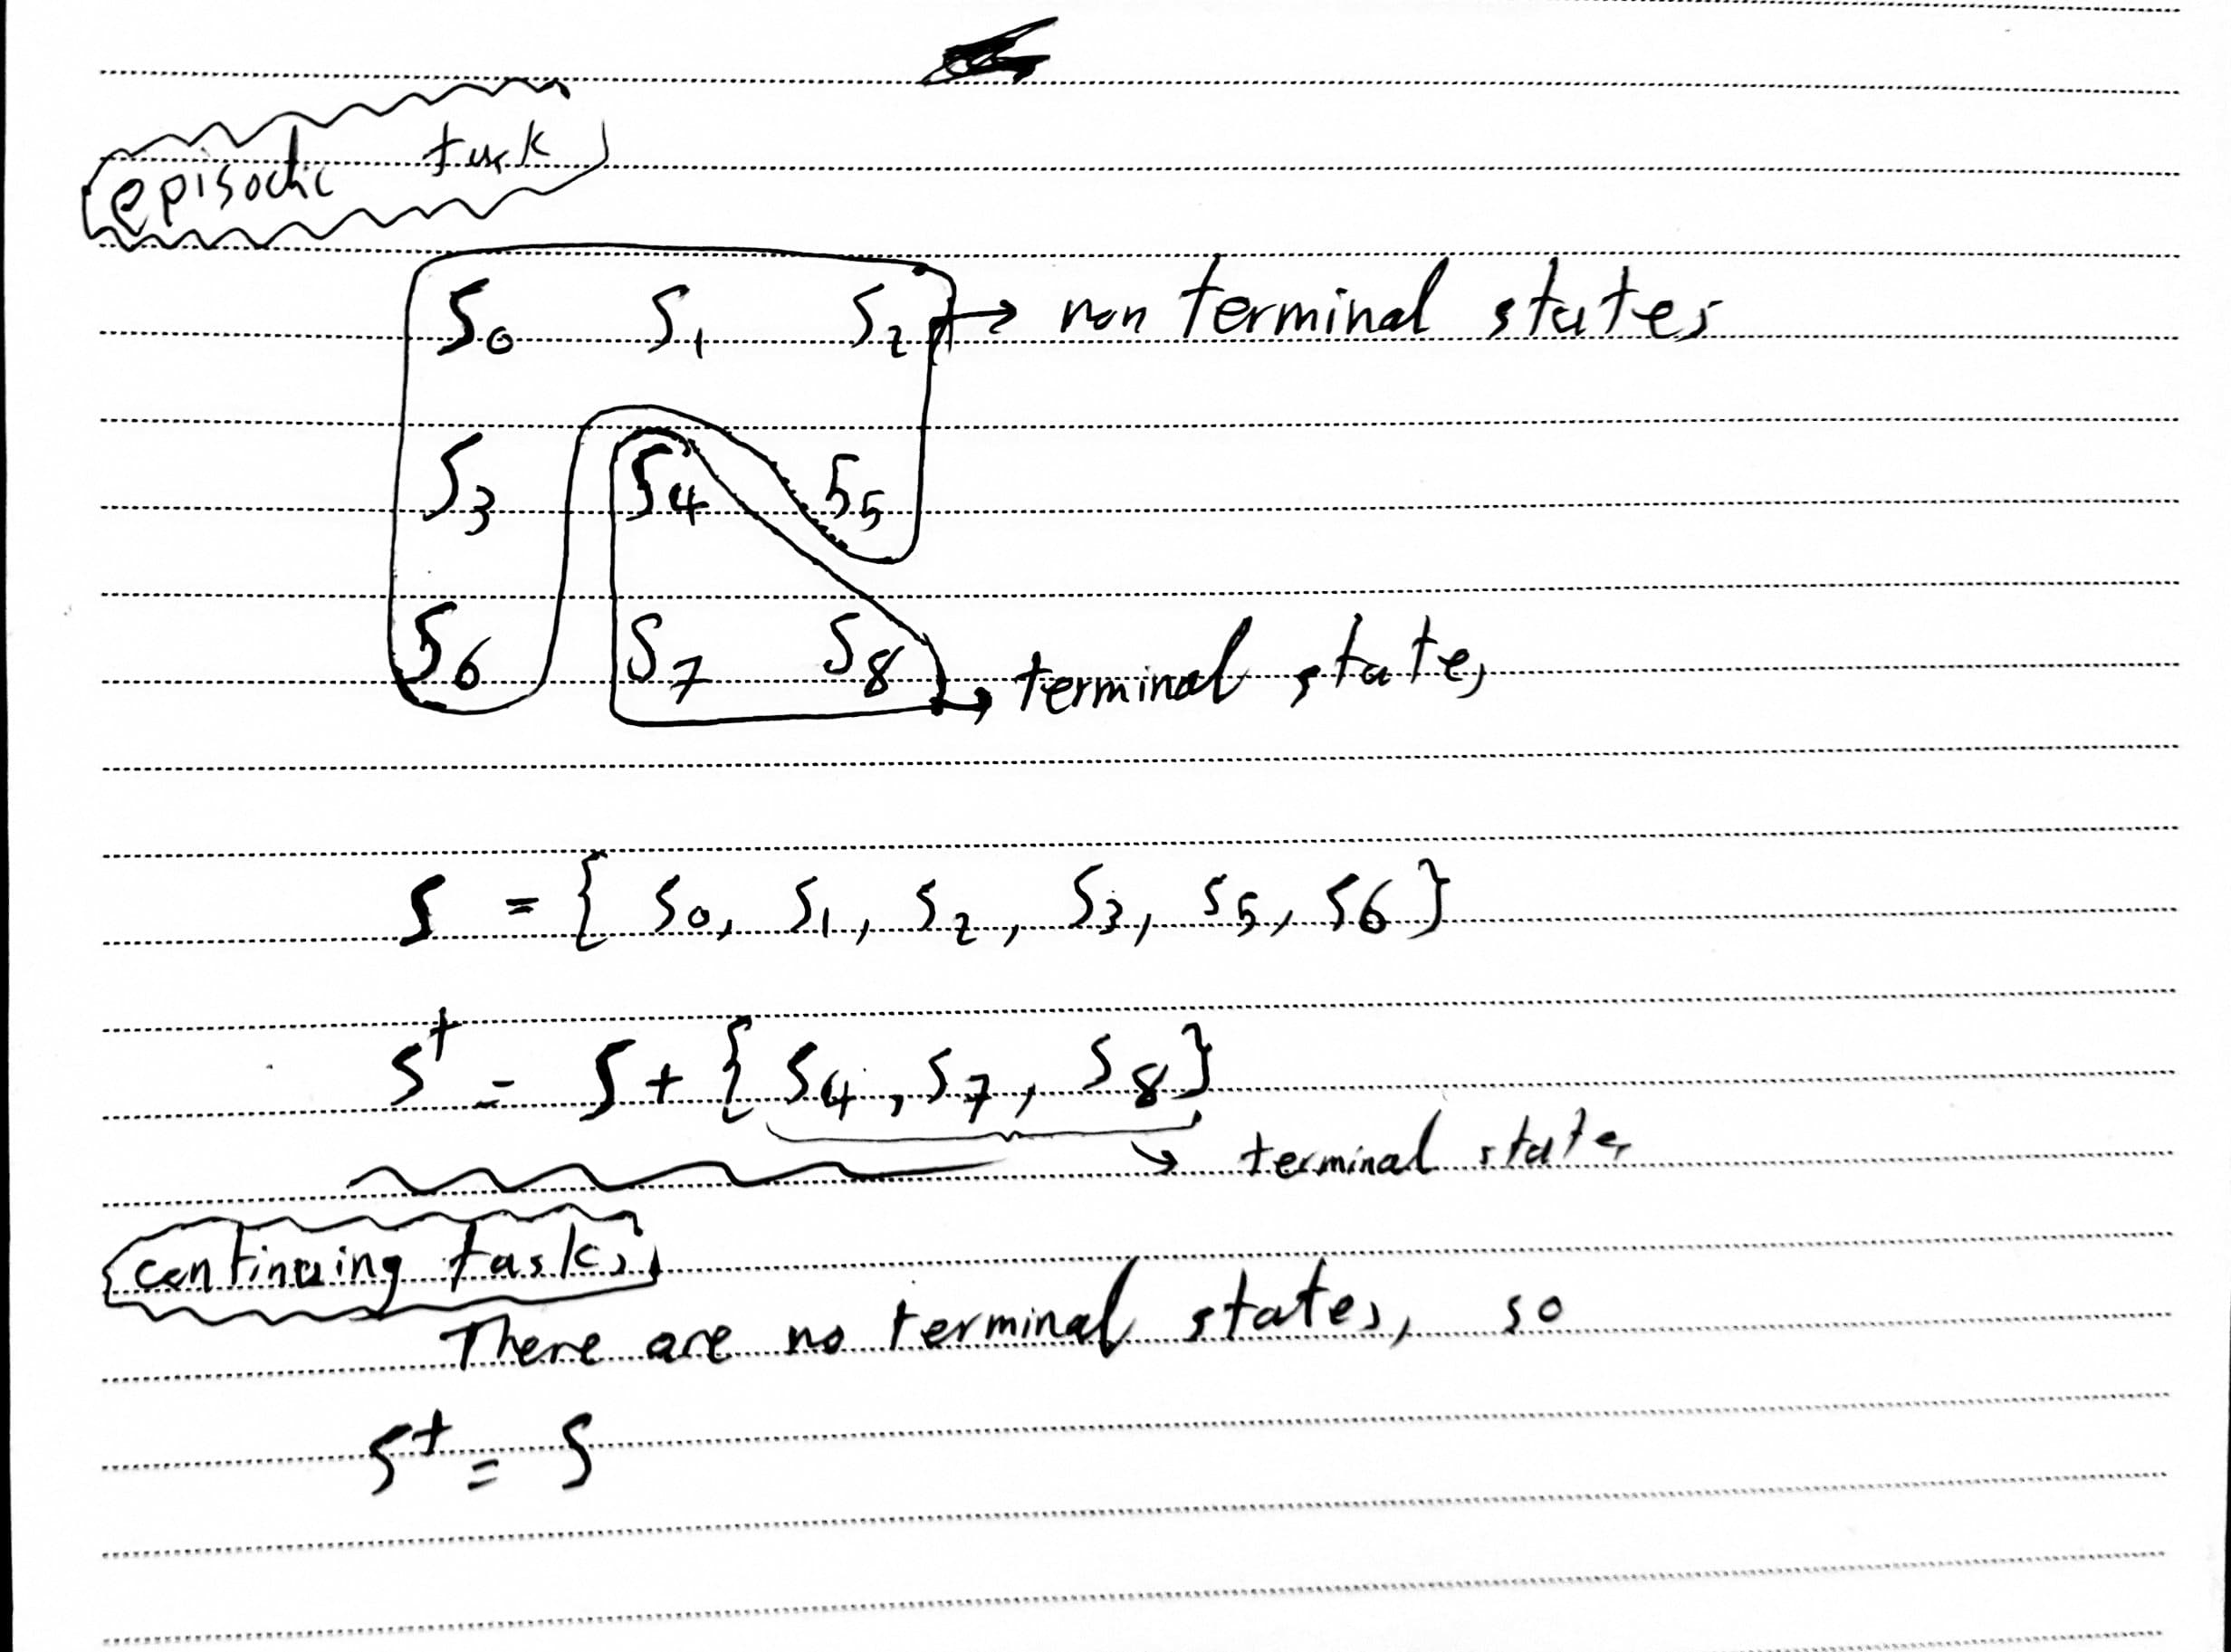 episodic task
S0 S1 S2 → non terminal states
S3 S4 S5
S6 S7 S8 → terminal states
S = { S0, S1, S2, S3, S5, S6 }
S⁺ = S + { S4, S7, S8 }
→ terminal states
continuing tasks
There are no terminal states, so
S⁺ = S